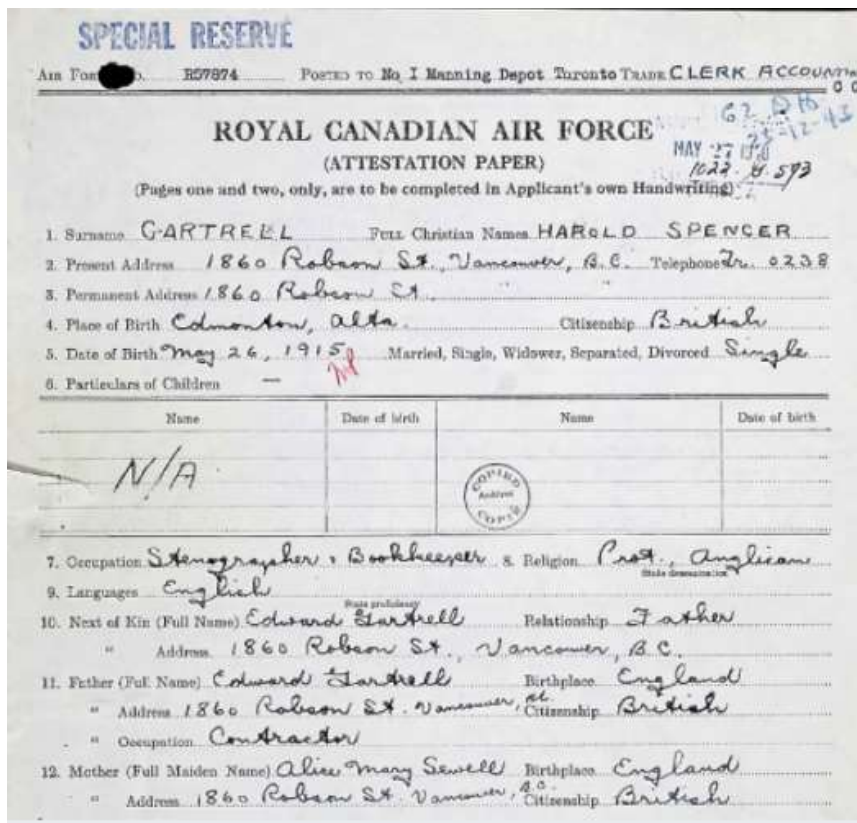 SPECIAL RESERVE
AIR FOR R57874 POSTED TO No I Manning Depot Toronto TRADE CLERK ACCOUNTA
ROYAL CANADIAN AIR FORCE
62
28-12-43
(ATTESTATION PAPER)
MAY 27
(Pages one and two, only, are to be completed in Applicant's own Handwriting)
1. Surname GARTRELL FULL Christian Names HAROLD SPENCER
2. Present Address 1860 Robson St., Vancouver, B.C. Telephone 0238
3. Permanent Address 1860 Robson St. " "
4. Place of Birth Edmonton, Alta. Citizenship British
5. Date of Birth May 26, 1915 Married, Single, Widower, Separated, Divorced Single
6. Particulars of Children —
Name Date of birth Name Date of birth
N/A
COPIED
Archives
COPIE
7. Occupation Stenographer & Bookkeeper 8. Religion Prot., Anglican
State denomination
9. Languages English
State proficiency
10. Next of Kin (Full Name) Edward Gartrell Relationship Father
" Address 1860 Robson St., Vancouver, B.C.
11. Father (Full Name) Edward Gartrell Birthplace England
" Address 1860 Robson St. Vancouver, B.C. Citizenship British
" Occupation Contractor
12. Mother (Full Maiden Name) Alice Mary Sewell Birthplace England
" Address 1860 Robson St. Vancouver, B.C. Citizenship British